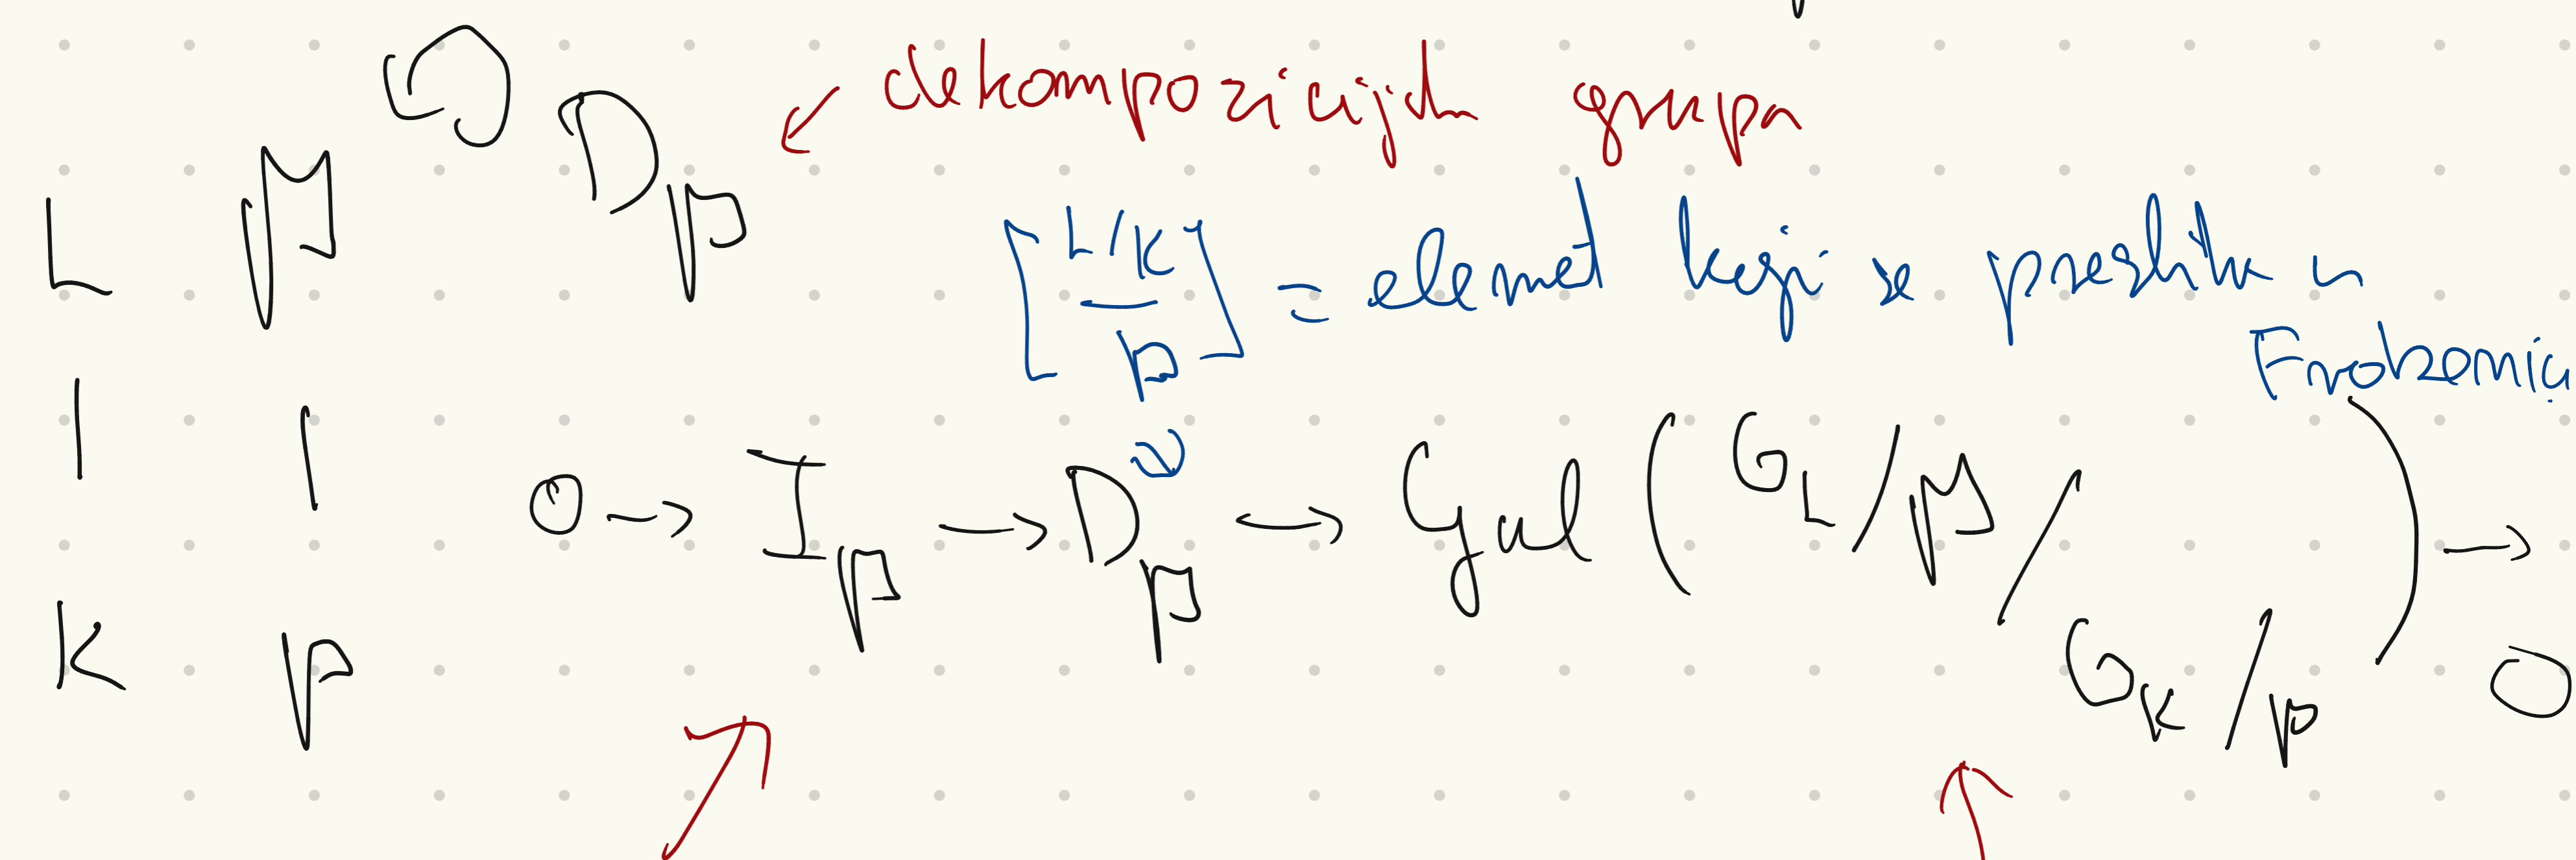 dekompozicijska grupa
L 𝔓 D_p
[L/K / p] = element koji se preslika u
Frobenius
0 → I_p → D_p → Gal(O_L/𝔓 / O_K/p) → 0
K p